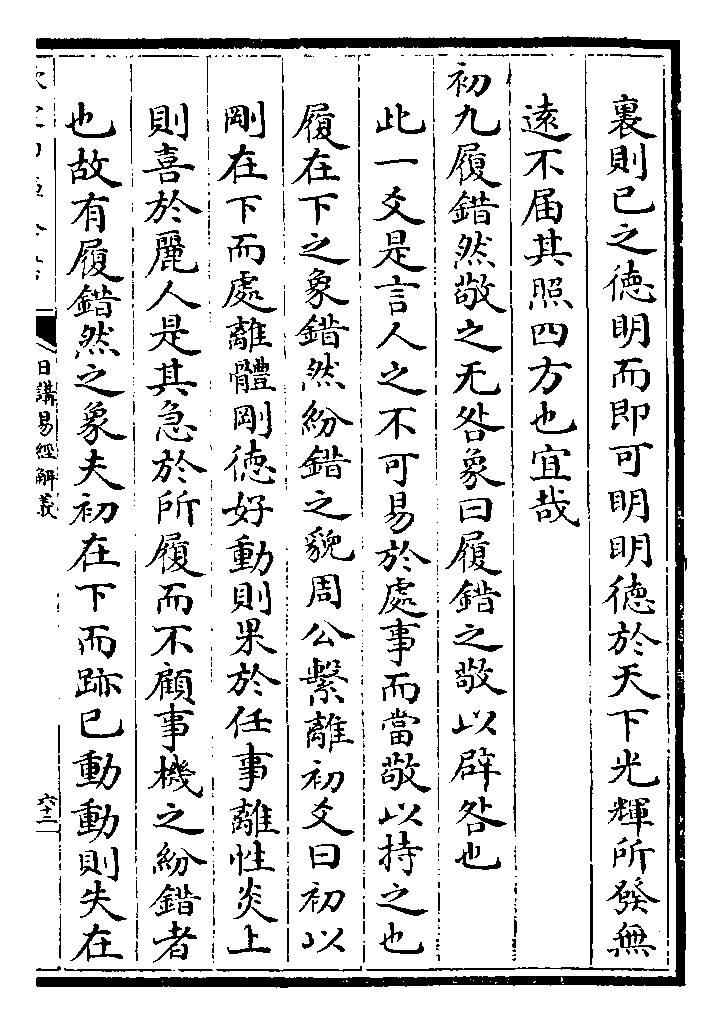 裏則已之徳明而即可明明徳於天下光輝所發無
遠不届其照四方也宜哉
初九履錯然敬之无咎象曰履錯之敬以辟咎也
此一爻是言人之不可易於處事而當敬以持之也
履在下之象錯然紛錯之貌周公繫離初爻曰初以
剛在下而處離體剛徳好動則果於任事離性炎上
則喜於麗人是其急於所履而不顧事機之紛錯者
也故有履錯然之象夫初在下而跡已動動則失在
日講易經解義
六十二